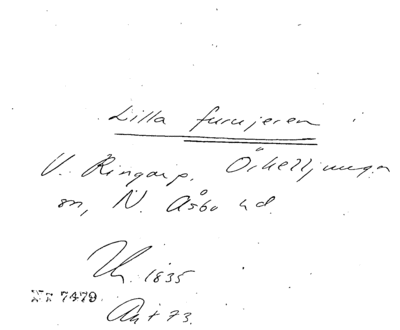 Lilla furujeren i
V. Ringarp. Örkelljunga
sn, N. Åsbo hd.
1835
Nr 7479.